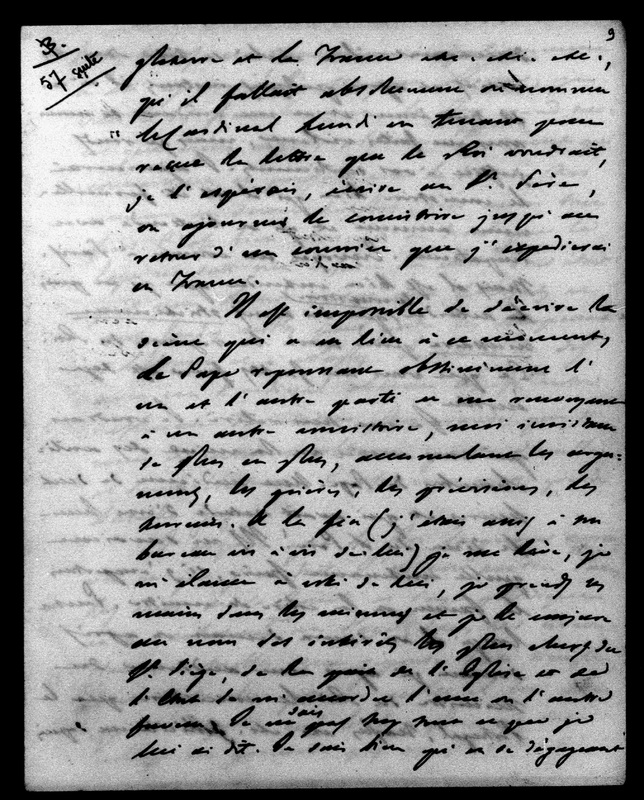 3.
57 suite
9
gleterre et la France etc. etc. etc.,
qu'il fallait absolument ou nommer
le Cardinal lundi en tenant pour
reçue la lettre que le Roi voudrait,
je l'espérais, écrire au St. Père,
ou ajourner le consistoire jusqu'au
retour d'un courrier que j'expédierai
en France.
Il est impossible de décrire la
scène qui a eu lieu à ce moment,
le Pape repoussant obstinément l'
un et l'autre parti et me renvoyant
à un autre consistoire, moi insistant
de plus en plus, accumulant les argu-
ments, les prières, les prévisions, les
terreurs. A la fin (j'étais assis à son
bureau vis à vis de lui) je me lève, je
m'élance à côté de lui, je prends ses
mains dans les miennes et je le conjure
au nom des intérêts les plus chers du
St. Siège, de la paix de l'Eglise et de
l'Etat de m'accorder l'une ou l'autre
faveur. Je ne sais pas trop tout ce que je
lui ai dit. Je sais bien qu'en se dégageant